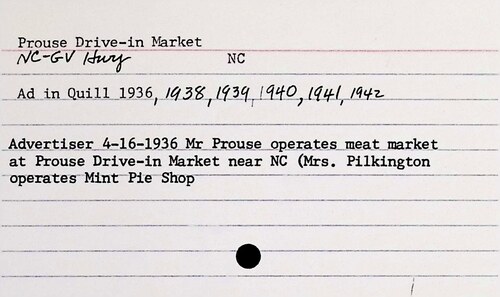 Prouse Drive-in Market
NC-GV Hwy NC
Ad in Quill 1936, 1938, 1939, 1940, 1941, 1942
Advertiser 4-16-1936 Mr Prouse operates meat market
at Prouse Drive-in Market near NC (Mrs. Pilkington
operates Mint Pie Shop